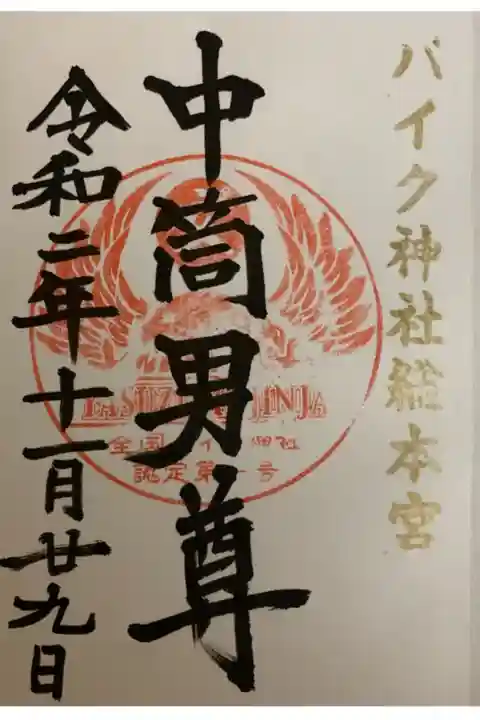 バイク神社総本宮
中筒男尊
令和二年十一月廿九日
JINJA
全国 イ 神社
認定第一号